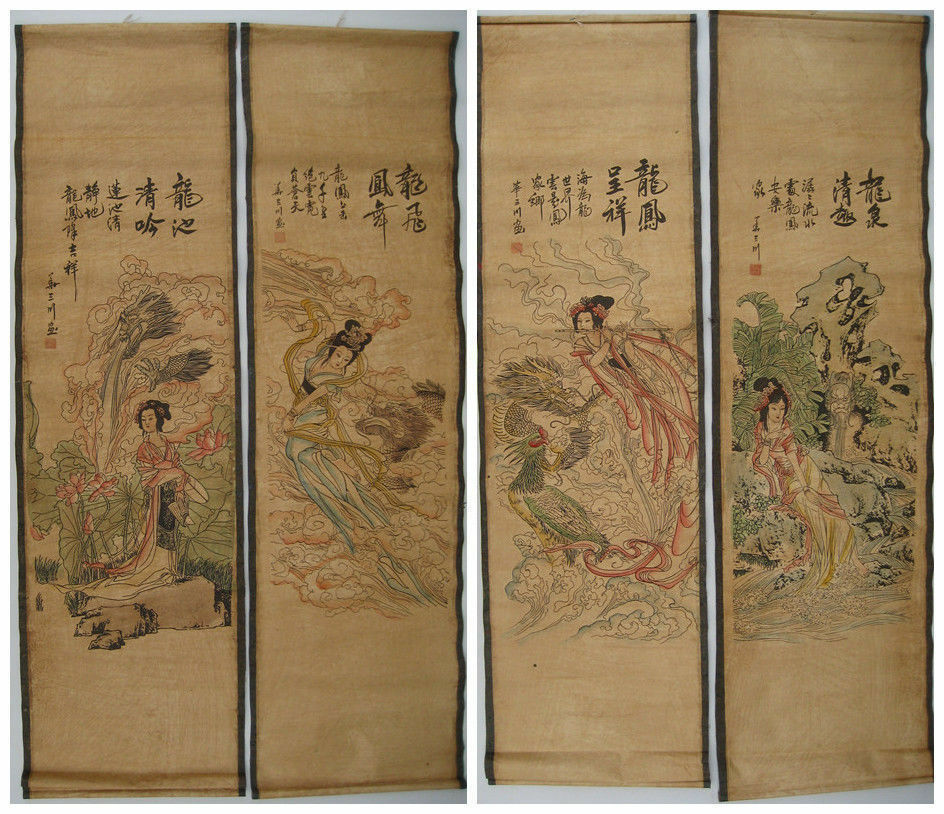 龍池
清吟
蓮池清
静地
龍鳳吉祥
華三川畫
龍飛
鳳舞
龍鳳
九千里
絕雲霓
負蒼天
華三川畫
龍鳳
呈祥
海為龍
世界
雲是鳳
家鄉
華三川畫
龍泉
清趣
潺々流水
處龍鳳
安樂
華三川